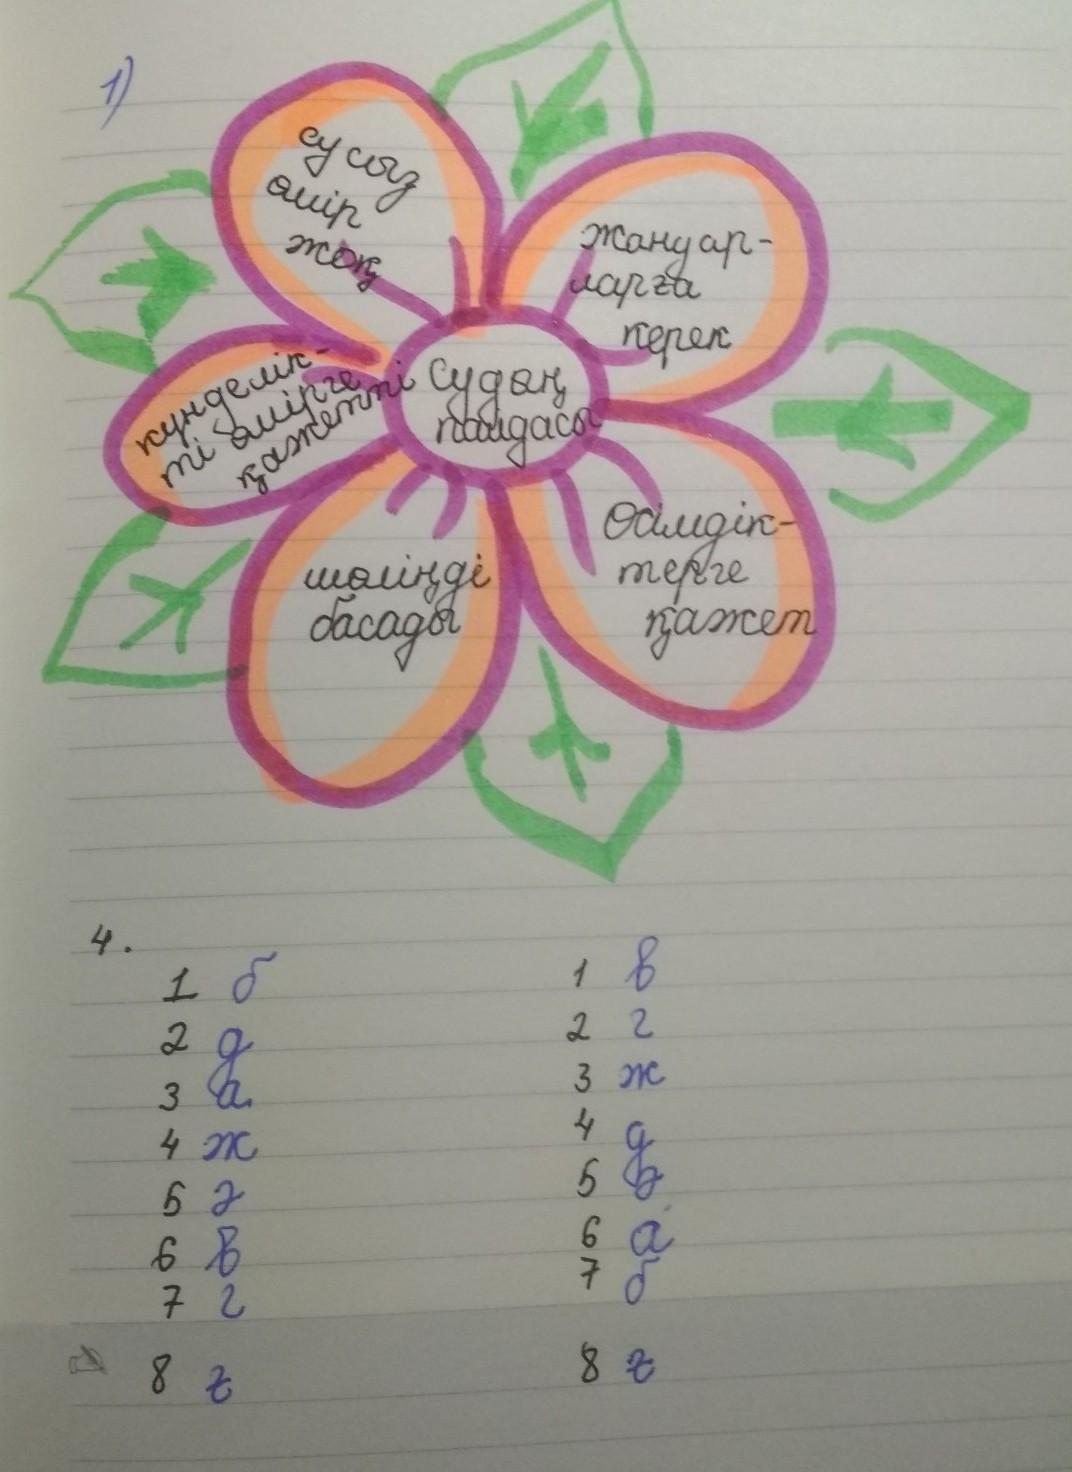 1)
сусыз
өмір
жоқ
жануар-
ларға
керек
күнделік-
ті өмірге
қажетті
Судың
пайдасы
шөліңді
басады
Өсімдік-
терге
қажет
4.
1 б
2 д
3 а
4 ж
5 ә
6 в
7 г
8 ғ
1 в
2 г
3 ж
4 д
5 ә
6 а
7 б
8 ғ